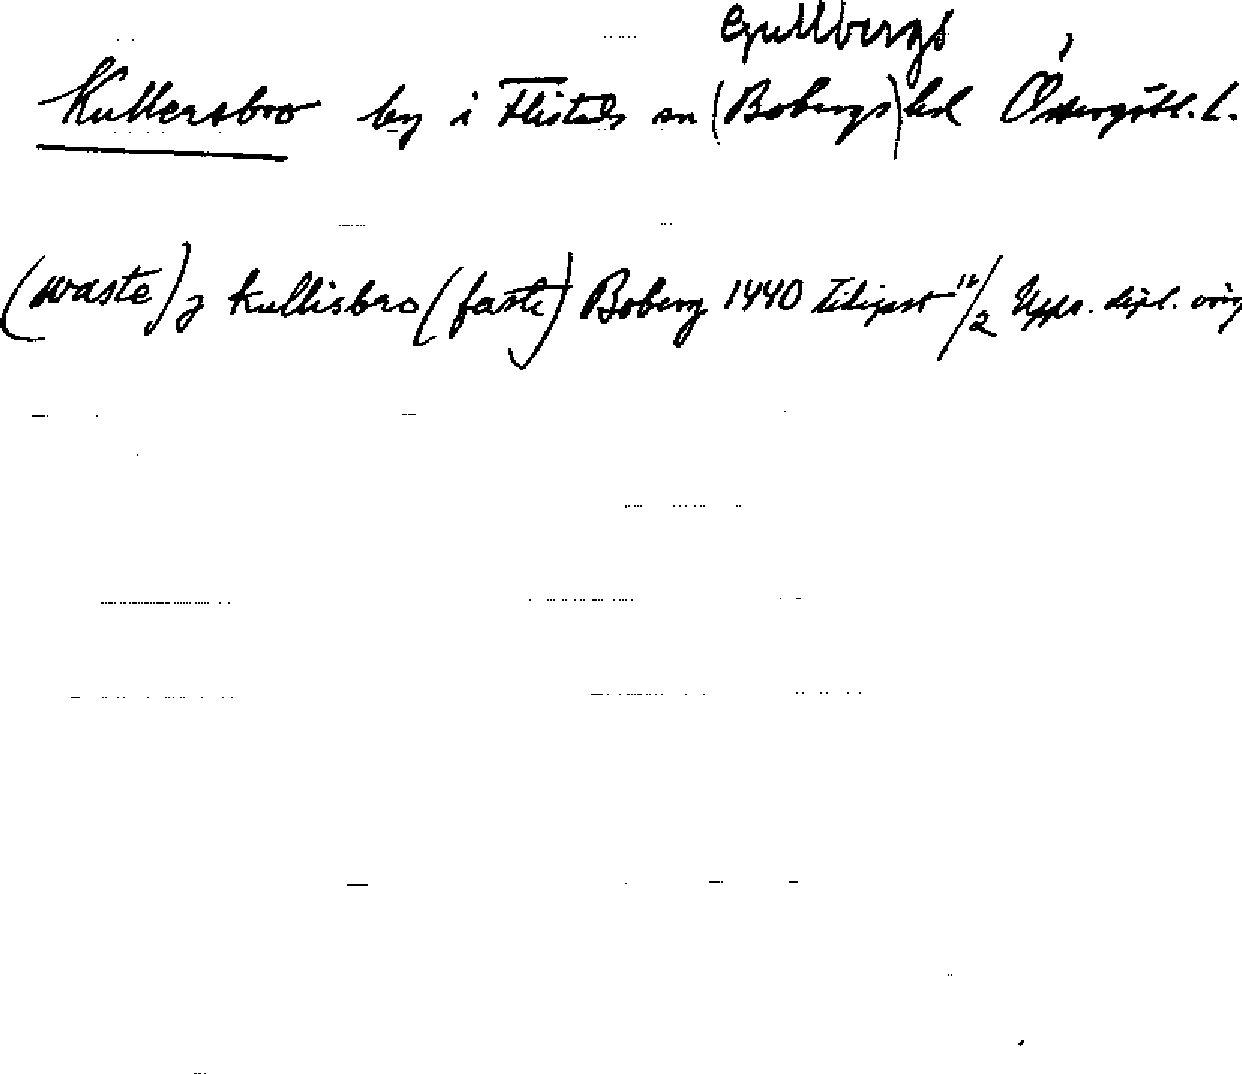 Gullbergs
Kullersbro by i Flistads sn (Bobergs) hd Östergötl. L.
(waste) j kullisbro (faste) Boberg 1440 tidigast 12/2 Upps. dipl. orig